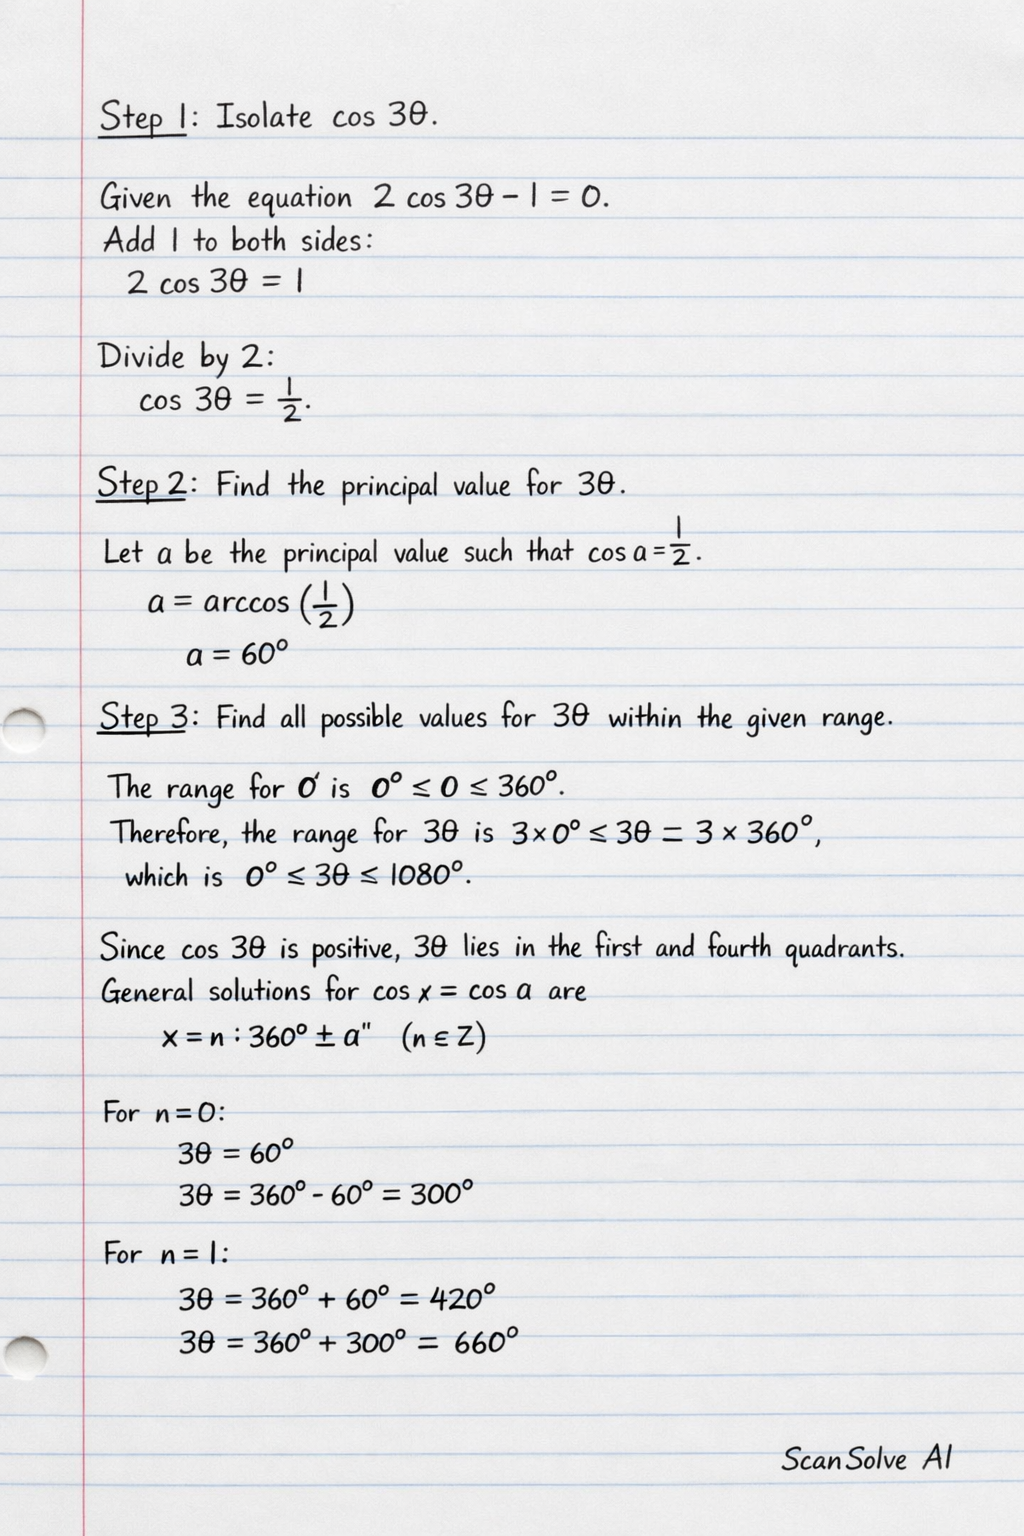 Step 1: Isolate cos 3θ.
Given the equation 2 cos 3θ - 1 = 0.
Add 1 to both sides:
2 cos 3θ = 1
Divide by 2:
cos 3θ = 1/2.
Step 2: Find the principal value for 3θ.
Let a be the principal value such that cos a = 1/2.
a = arccos (1/2)
a = 60°
Step 3: Find all possible values for 3θ within the given range.
The range for 0' is 0° ≤ 0 ≤ 360°.
Therefore, the range for 3θ is 3×0° ≤ 3θ = 3 × 360°,
which is 0° ≤ 3θ ≤ 1080°.
Since cos 3θ is positive, 3θ lies in the first and fourth quadrants.
General solutions for cos x = cos a are
x = n : 360° ± a" (n ∈ Z)
For n = 0:
3θ = 60°
3θ = 360° - 60° = 300°
For n = 1:
3θ = 360° + 60° = 420°
3θ = 360° + 300° = 660°
ScanSolve AI